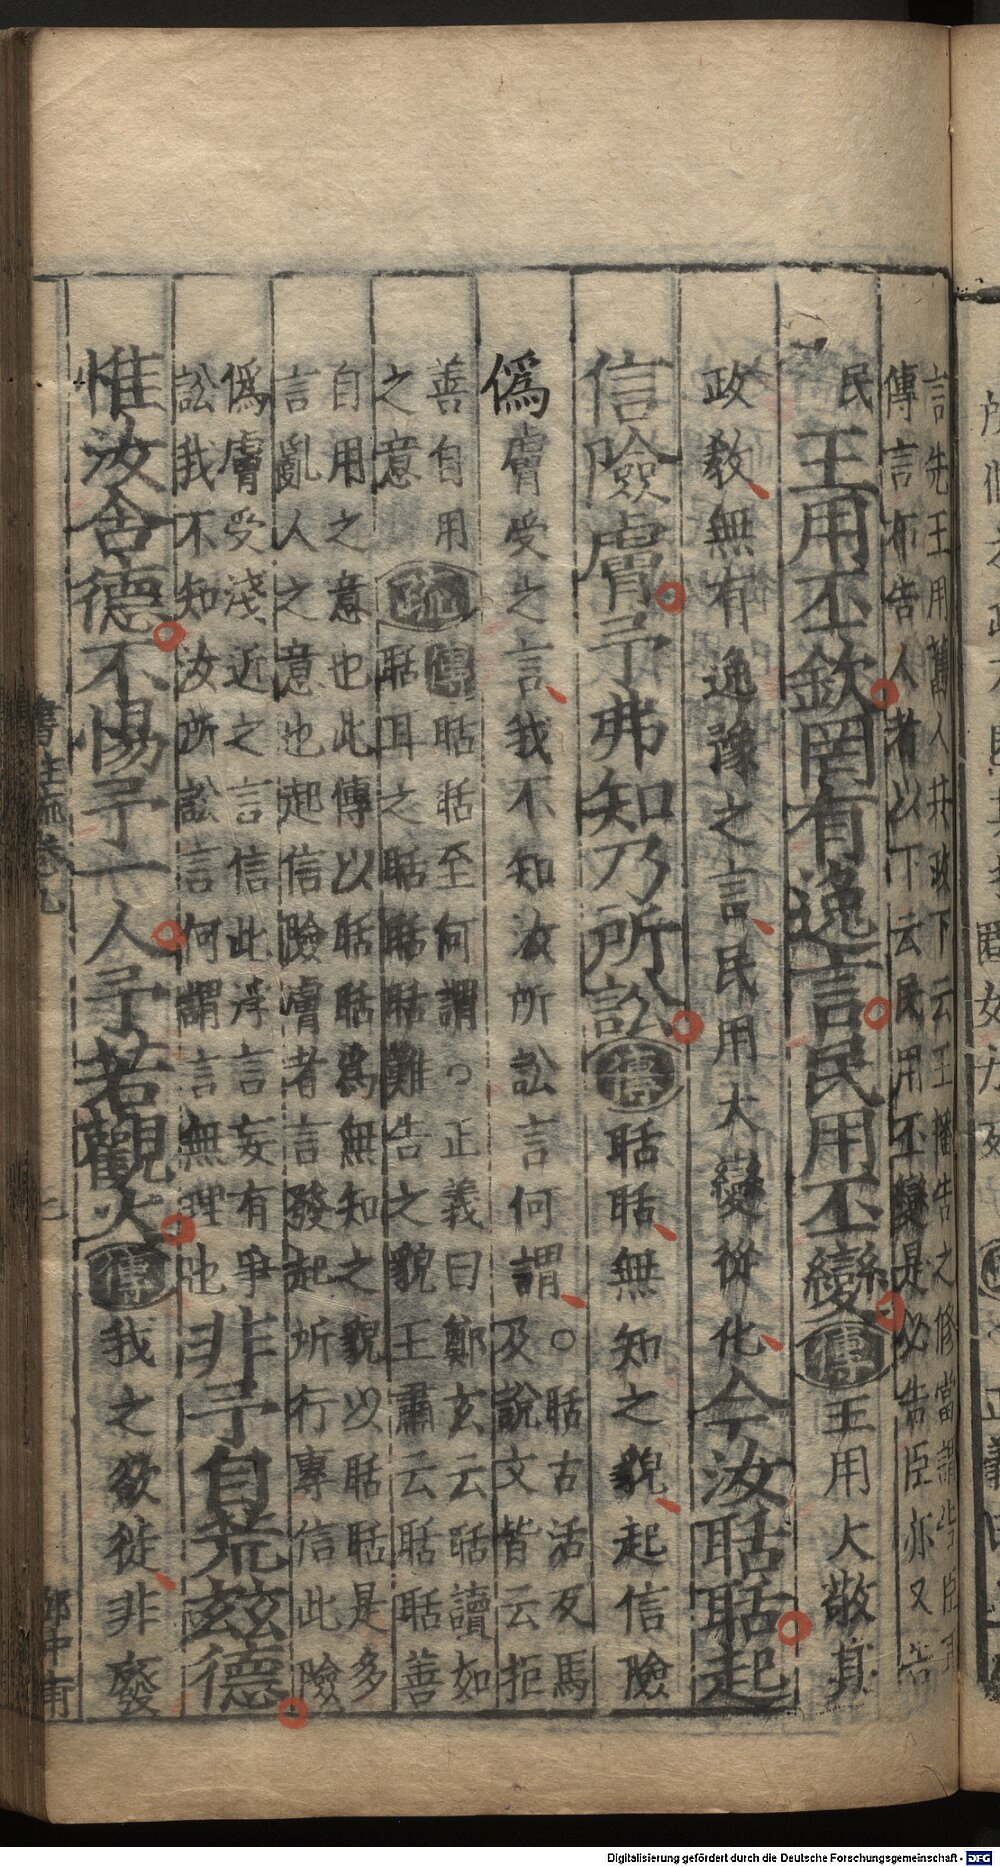 言先王用舊人共政下云王播告之修當謂告臣耳
傳言布告人者以下云民用丕變是必告臣亦又告
民王用丕欽罔有逸言民用丕變傳王用大敬其
政教無有逸豫之言民用大變從化今汝聒聒起
信險膚予弗知乃所訟傳聒聒無知之貌起信險
偽膚受之言我不知汝所訟言何謂○聒古活反馬
及說文皆云拒
善自用
之意疏傳聒聒至何謂○正義曰鄭玄云聒讀如
聒耳之聒聒聒難告之貌王肅云聒聒善
自用之意也此傳以聒聒為無知之貌以聒聒是多
言亂人之意也起信險膚者言發起所行專信此險
偽膚受淺近之言信此浮言妄有爭
訟我不知汝所訟言何謂言無理也非予自荒茲德
惟汝含德不惕予一人予若觀火傳我之欲徙非廢
書註疏卷九
七
Digitalisierung gefördert durch die Deutsche Forschungsgemeinschaft - DFG